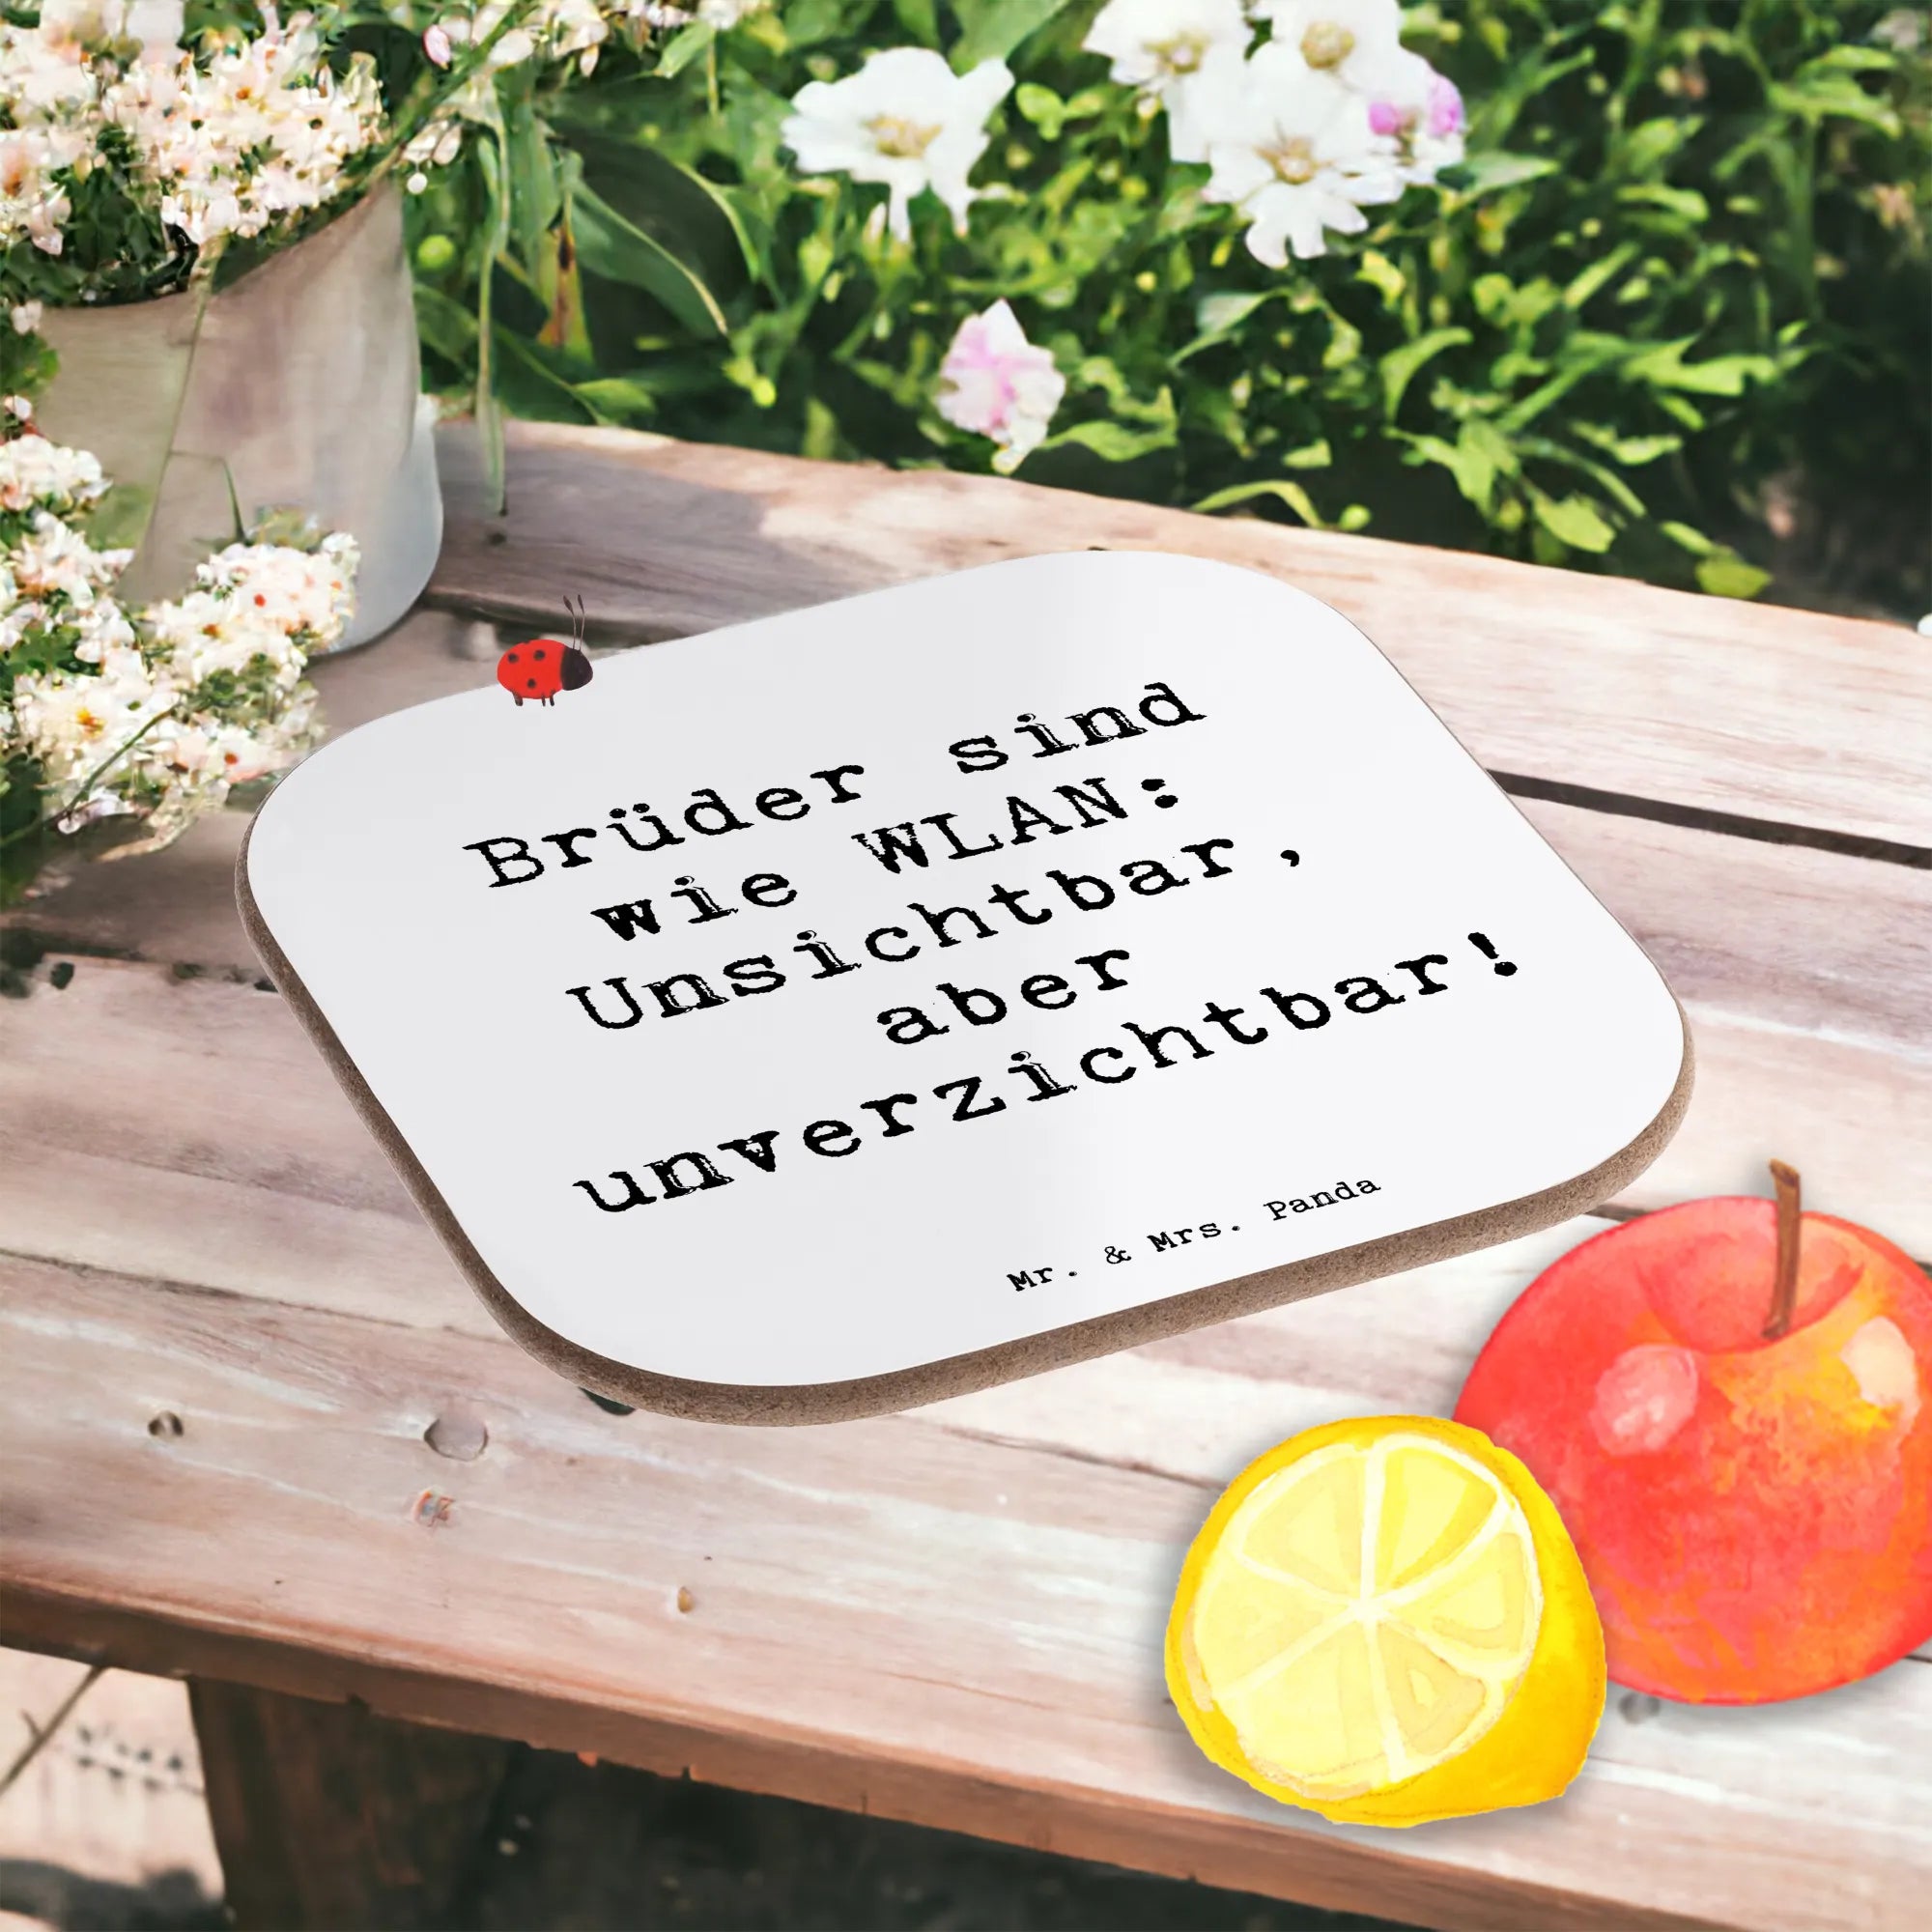 Brüder sind
wie WLAN:
Unsichtbar,
aber
unverzichtbar!
Mr. & Mrs. Panda